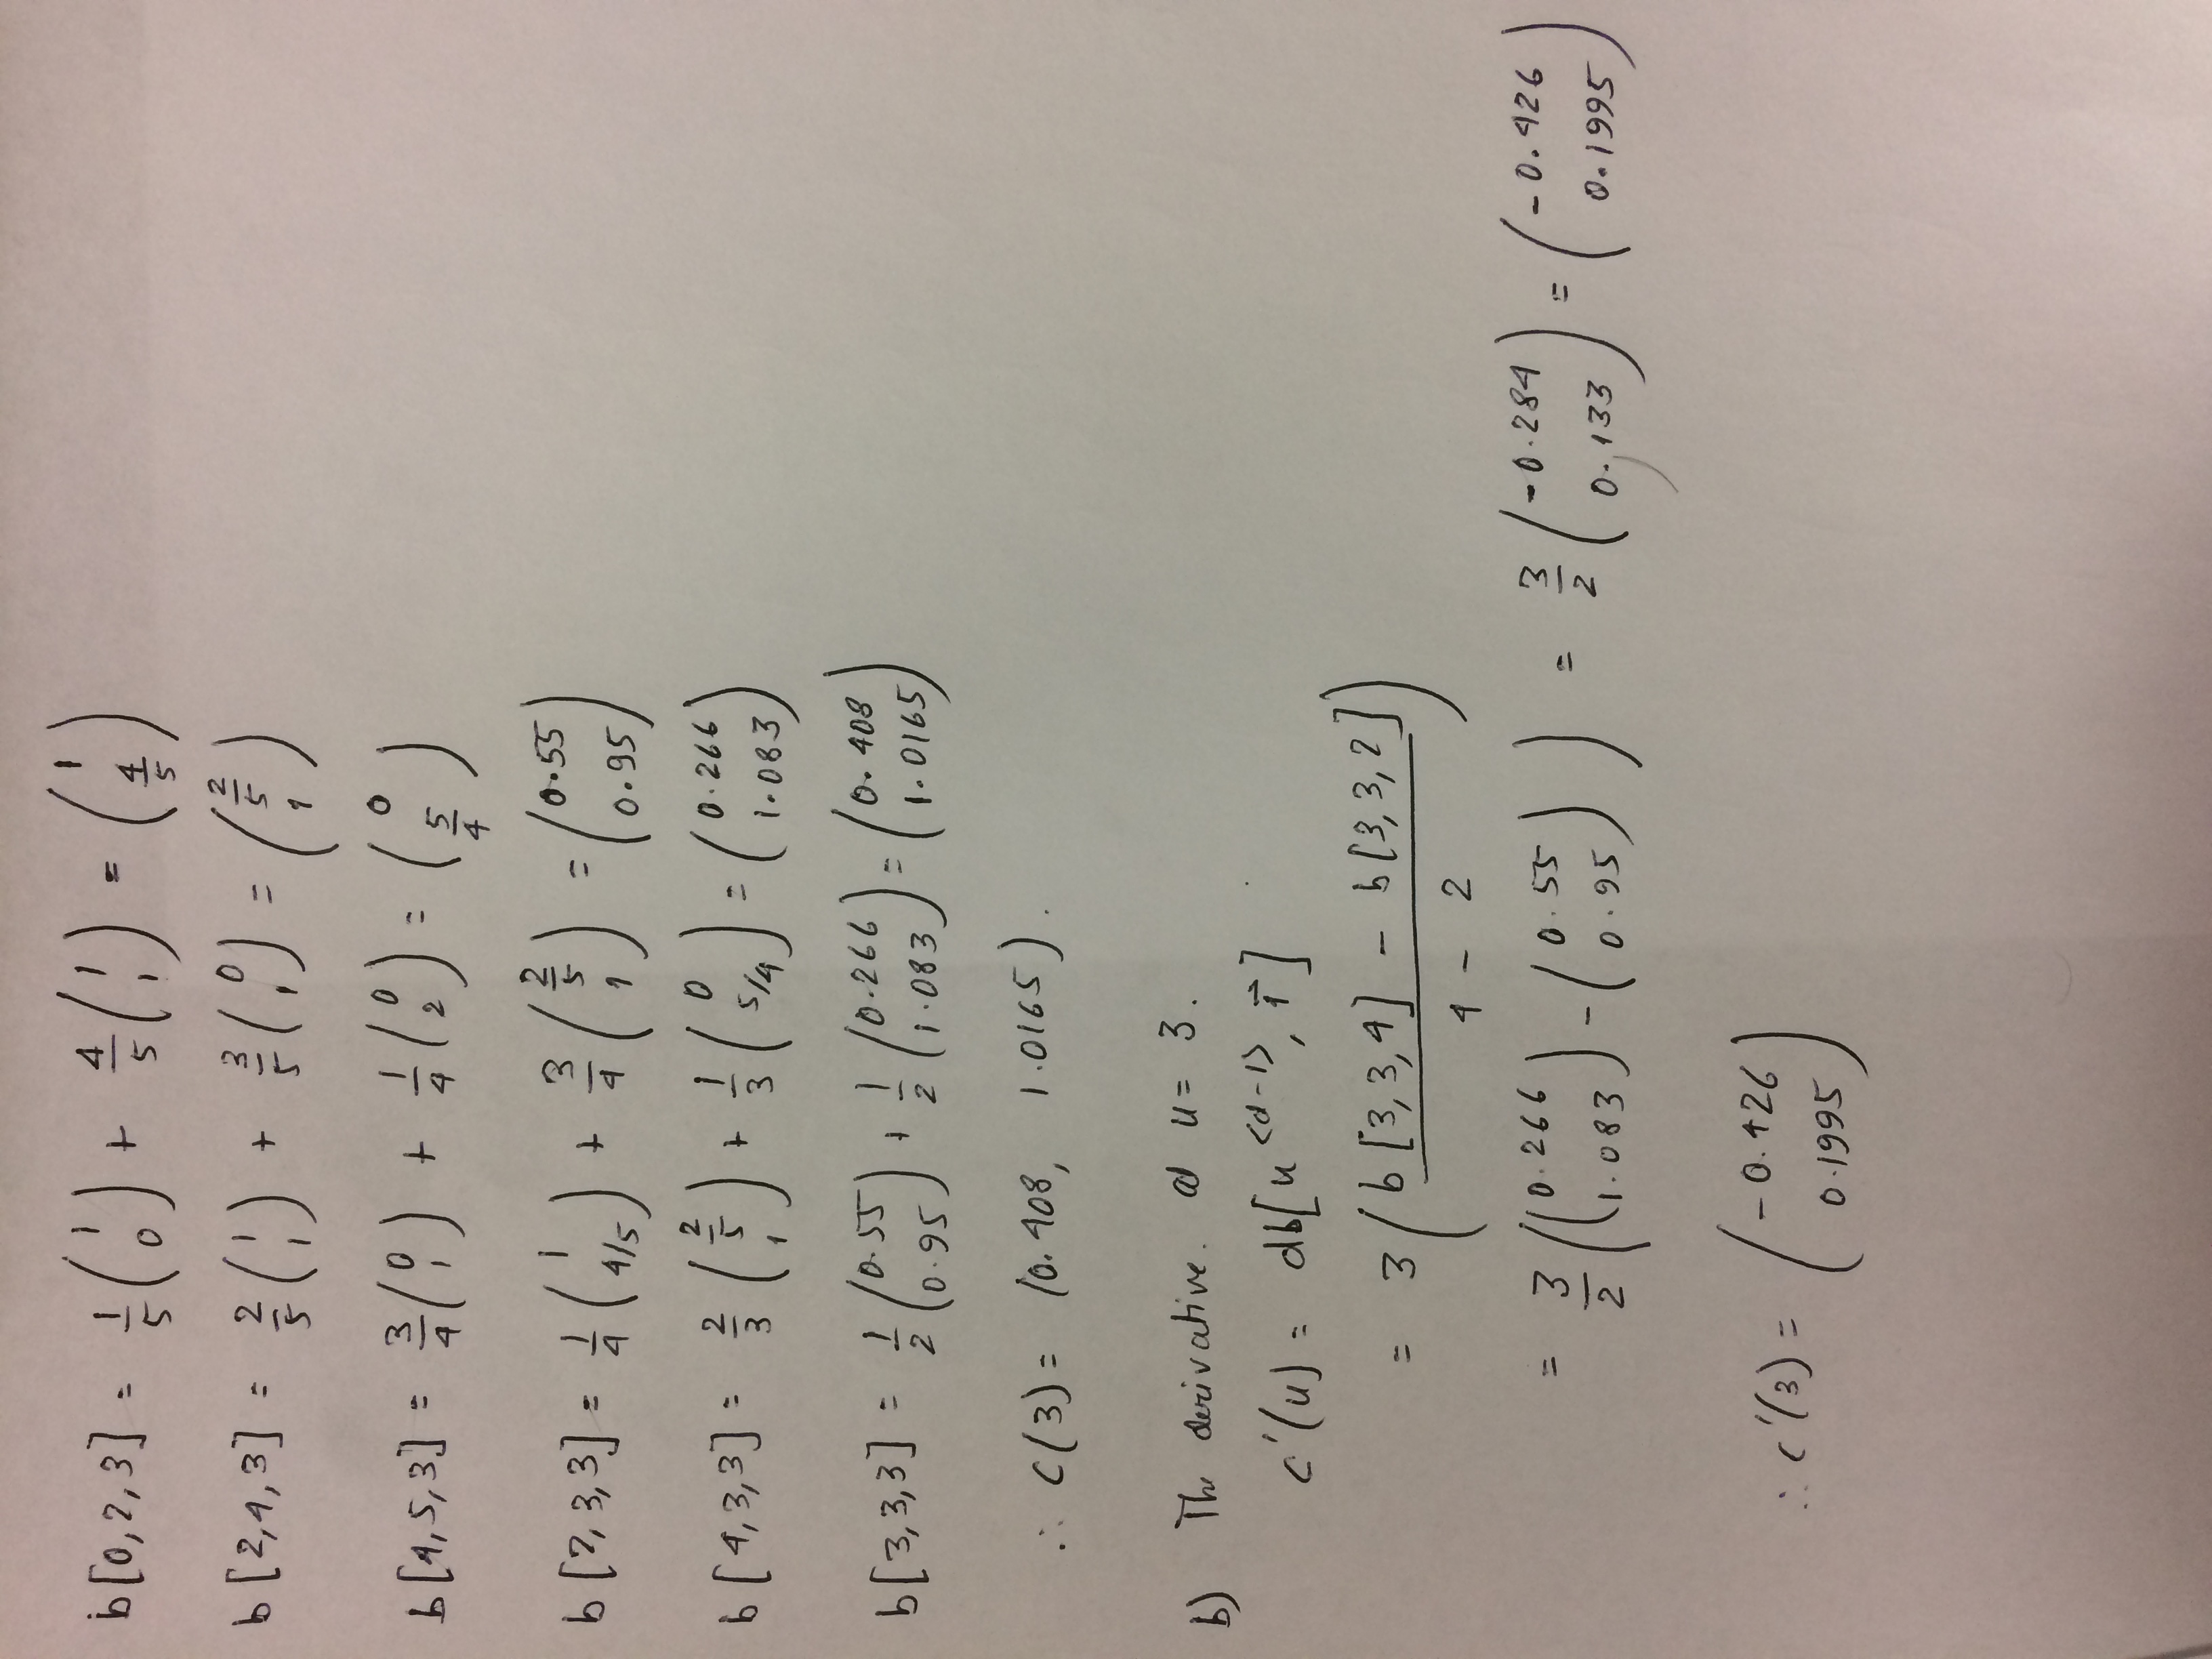 b[0,2,3] = 1/5 (1 0) + 4/5 (1 1) = (1 4/5)
b[2,4,3] = 2/5 (1 1) + 3/5 (0 1) = (2/5 1)
b[4,5,3] = 3/4 (0 1) + 1/4 (0 2) = (0 5/4)
b[2,3,3] = 1/4 (1 4/5) + 3/4 (2/5 1) = (0.55 0.95)
b[4,3,3] = 2/3 (2/5 1) + 1/3 (0 5/4) = (0.266 1.083)
b[3,3,3] = 1/2 (0.55 0.95) + 1/2 (0.266 1.083) = (0.408 1.0165)
∴ C(3) = (0.408, 1.0165).
b) The derivative. at u = 3.
C'(u) = db[u^<d-1>, 1⃗]
= 3 ( (b[3,3,4] - b[3,3,2]) / (4 - 2) )
= 3/2 ((0.266 1.083) - (0.55 0.95)) = 3/2 (-0.284 0.133) = (-0.426 0.1995)
∴ C'(3) = (-0.426 0.1995)